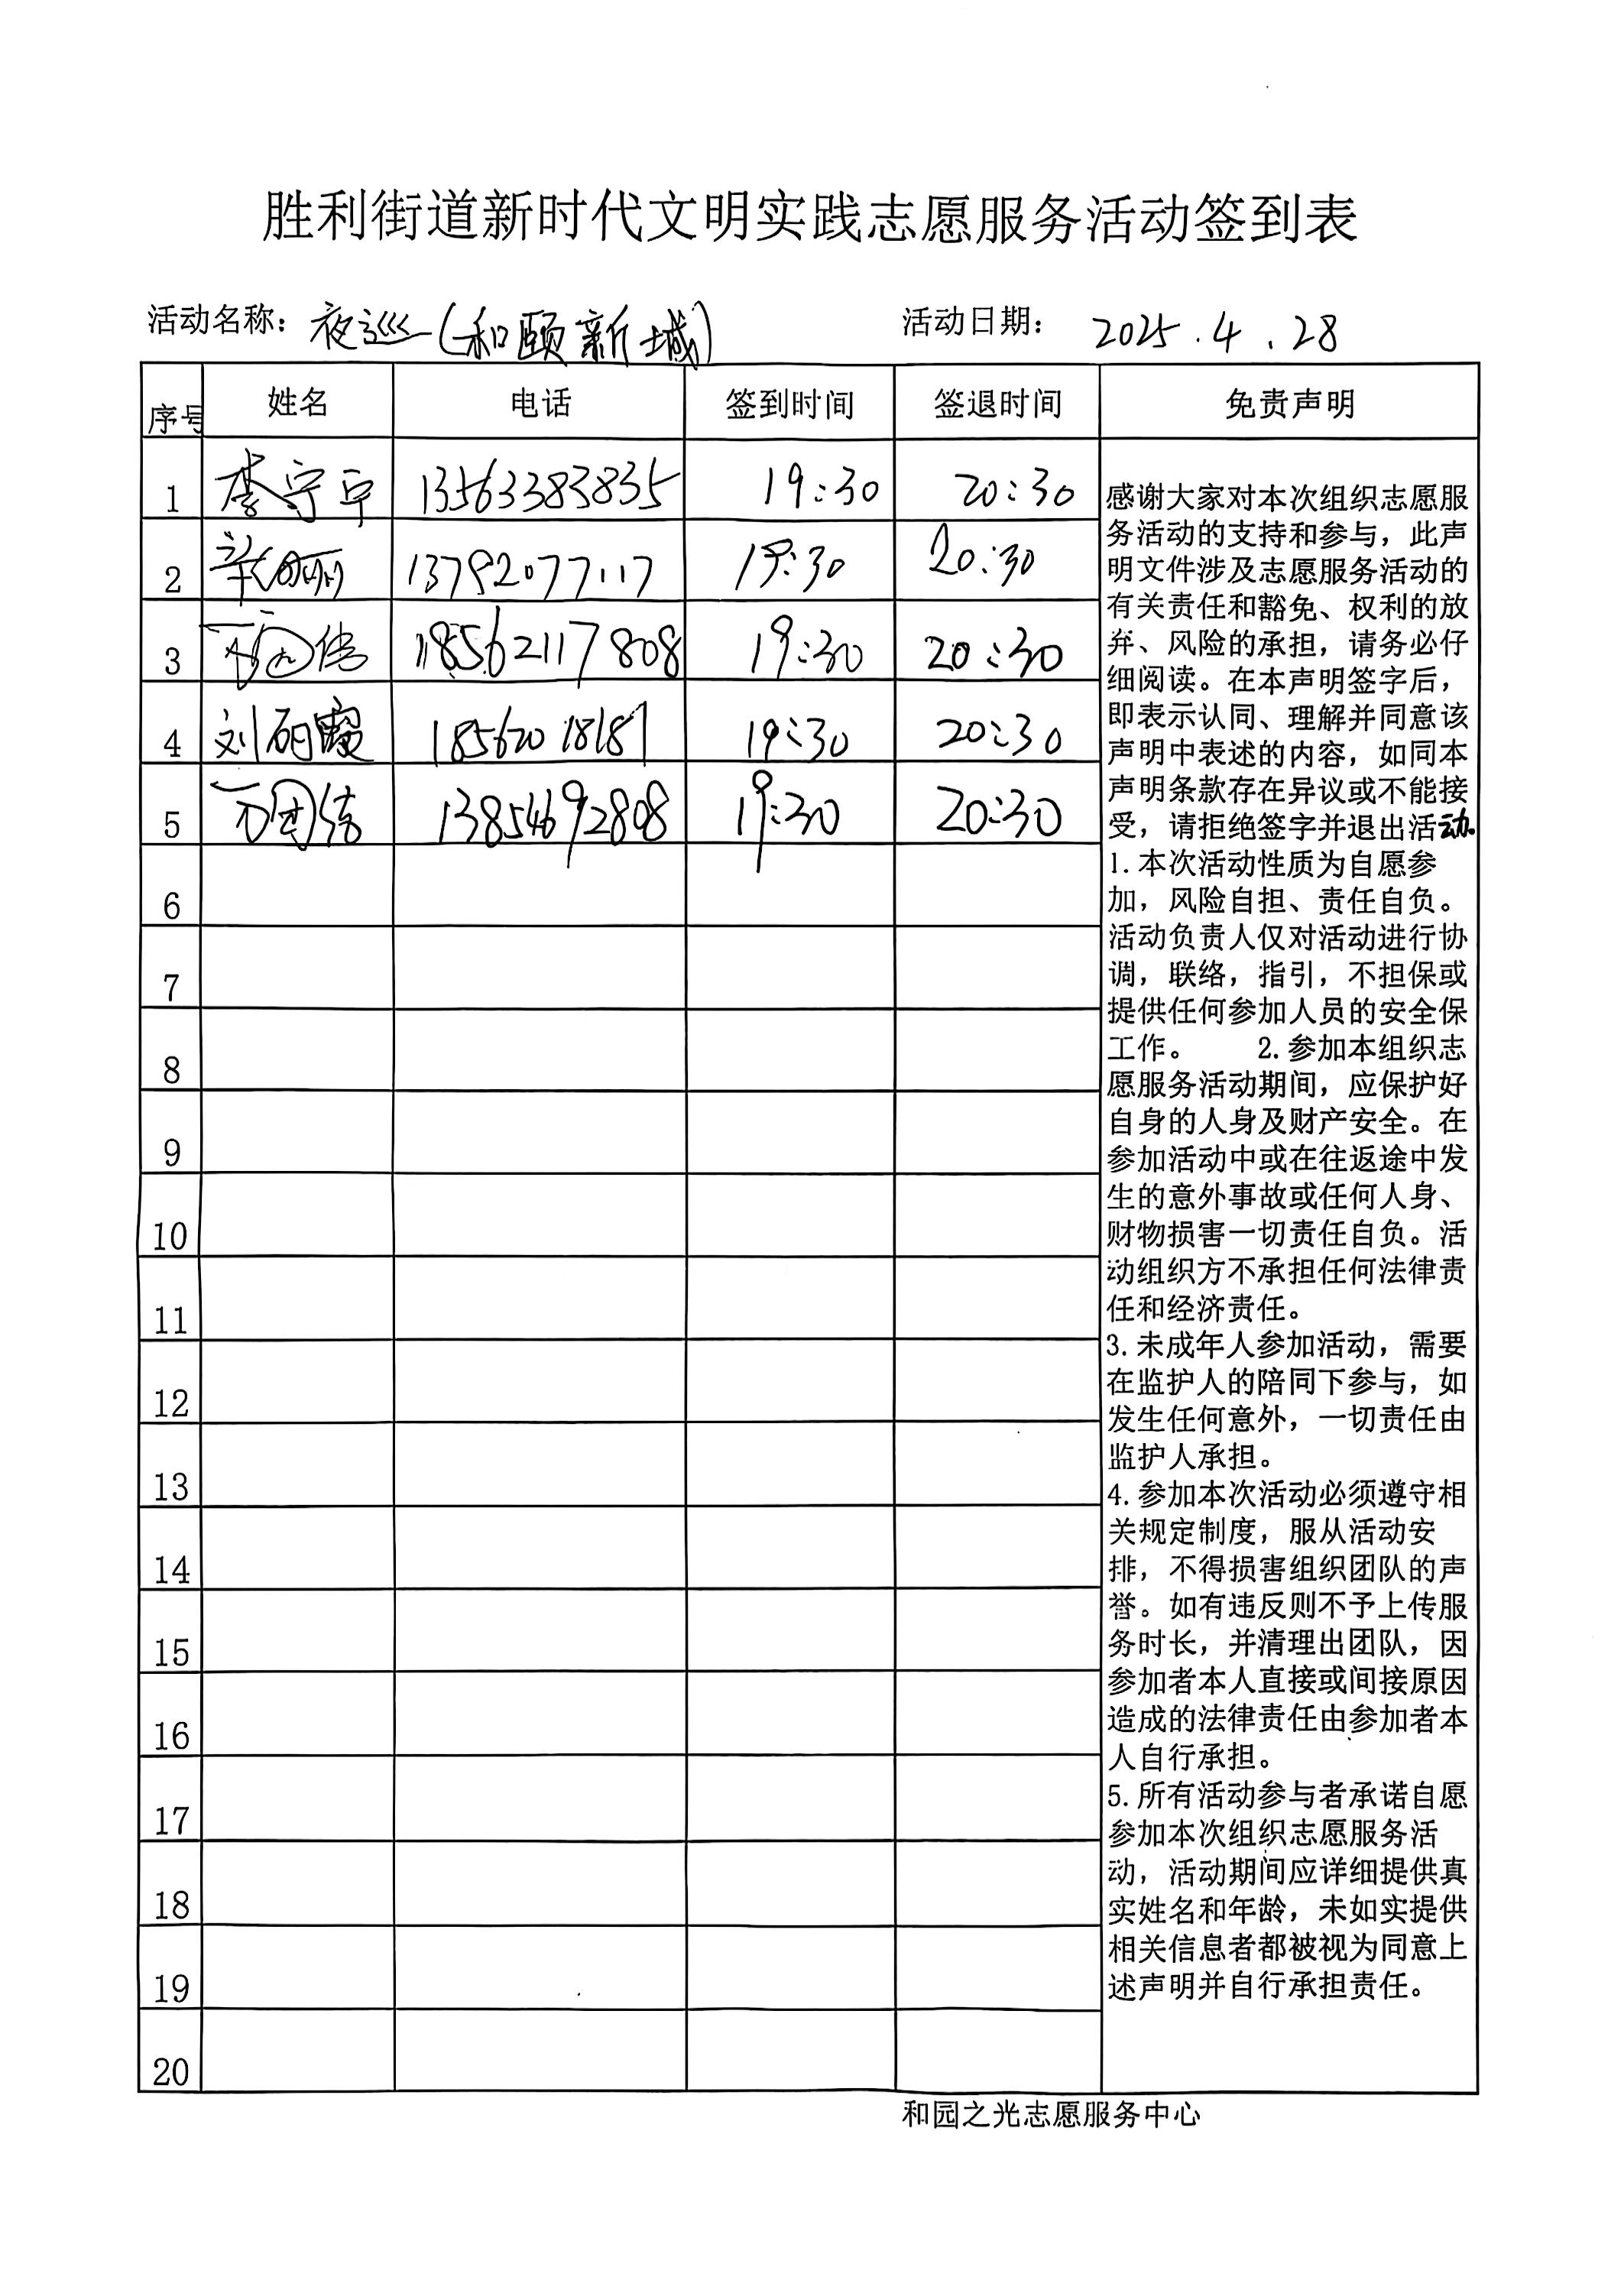 胜利街道新时代文明实践志愿服务活动签到表
活动名称：夜巡（和颐新城） 活动日期： 2025.4.28
序号 姓名 电话 签到时间 签退时间 免责声明
1 李守宁 13563383835 19:30 20:30
2 13792077117 19:30 20:30
3 18562117808 19:30 20:30
4 刘丽霞 18562018181 19:30 20:30
5 13854692808 19:30 20:30
6
7
8
9
10
11
12
13
14
15
16
17
18
19
20
感谢大家对本次组织志愿服
务活动的支持和参与，此声
明文件涉及志愿服务活动的
有关责任和豁免、权利的放
弃、风险的承担，请务必仔
细阅读。在本声明签字后，
即表示认同、理解并同意该
声明中表述的内容，如同本
声明条款存在异议或不能接
受，请拒绝签字并退出活动。
1.本次活动性质为自愿参
加，风险自担、责任自负。
活动负责人仅对活动进行协
调，联络，指引，不担保或
提供任何参加人员的安全保
工作。 2.参加本组织志
愿服务活动期间，应保护好
自身的人身及财产安全。在
参加活动中或在往返途中发
生的意外事故或任何人身、
财物损害一切责任自负。活
动组织方不承担任何法律责
任和经济责任。
3.未成年人参加活动，需要
在监护人的陪同下参与，如
发生任何意外，一切责任由
监护人承担。
4.参加本次活动必须遵守相
关规定制度，服从活动安
排，不得损害组织团队的声
誉。如有违反则不予上传服
务时长，并清理出团队，因
参加者本人直接或间接原因
造成的法律责任由参加者本
人自行承担。
5.所有活动参与者承诺自愿
参加本次组织志愿服务活
动，活动期间应详细提供真
实姓名和年龄，未如实提供
相关信息者都被视为同意上
述声明并自行承担责任。
和园之光志愿服务中心